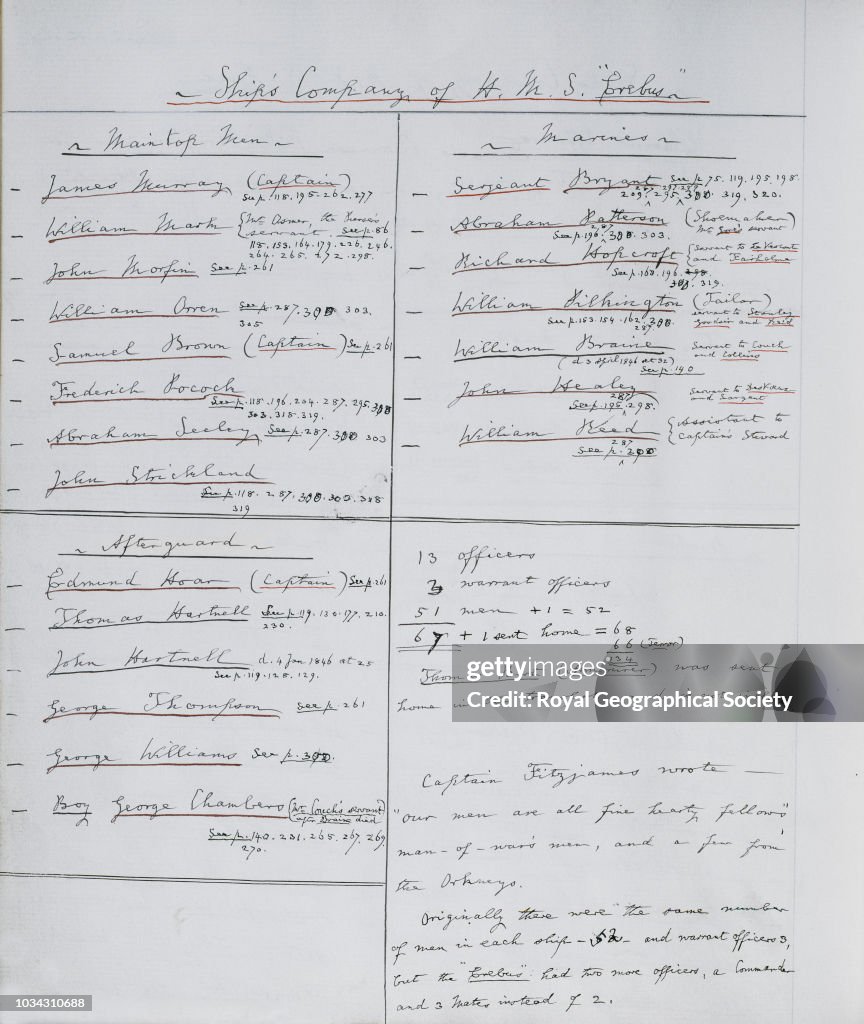 ~ Ship's Company of H. M. S. "Erebus" ~
~ Maintop Men ~
– James Murray (Captain)
See p. 118. 195. 262. 277
– William Mark {Mr Osmer, the Purser's
servant. See p. 86
118. 153. 164. 179. 226. 246.
264. 265. 272. 298.
– John Morfin See p. 261
– William Orren See p. 287. 300 303.
305
– Samuel Brown (Captain) See p. 261
– Frederick Pocock
See p. 118. 196. 204. 287. 295. 300
303. 318. 319.
– Abraham Seeley See p. 287. 300 303
– John Strickland
See p. 118. 287. 300. 303. 308
319
~ Afterguard ~
– Edmund Hoar (Captain) See p. 261
– Thomas Hartnell See p. 119. 130. 177. 210.
230.
– John Hartnell d. 4 Jan 1846 at 25
See p. 119. 128. 129.
– George Thompson See p. 261
– George Williams See p. 300.
– Boy George Chambers (Mr Couch's servant
after Braine died
See p. 140. 231. 265. 267. 269
270.
~ Marines ~
– Serjeant Bryant See p. 75. 119. 195. 198.
287. 289
209. 295. 300. 319. 320.
– Abraham Patterson (Shoemaker)
Mr Gore's servant
287
See p. 196. 300. 303.
– Richard Hopcroft {servant to Le Vesconte
and Fairholme
See p. 160. 196. 298.
300. 319.
– William Pilkington (Tailor)
servant to Stanley
Goodsir and Reid
See p. 153. 154. 162. 200.
287.
– William Braine servant to Couch
and Collins
(d. 3 April 1846 at 32)
See p. 140
– John Healey servant to Des Voeux
and Sargent
287
See p. 195. 298.
– William Reed {Assistant to
Captain's Steward
287
See p. 200
13 officers
3 warrant officers
51 men + 1 = 52
67 + 1 sent home = 68
66 (Terror)
134
Thomas was sent
home
Captain Fitzjames wrote —
"our men are all fine hearty fellows"
man-of-war's men, and a few from
the Orkneys.
Originally there were "the same number
of men in each ship – 52 – and warrant officers 3,
but the "Erebus" had two more officers, a Commander
and 3 Mates instead of 2.
gettyimages®
Royal Geographical Society
1034310688